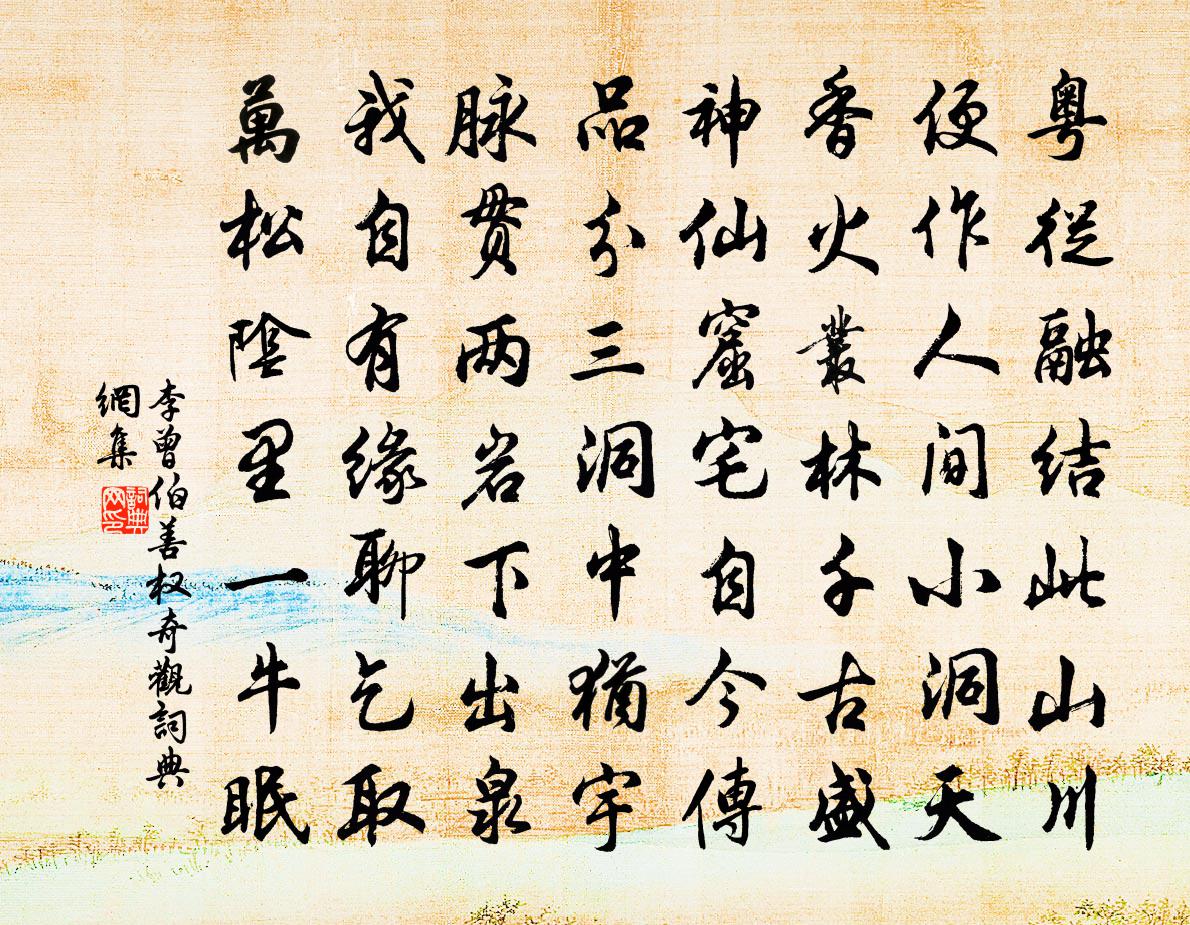 粤從融结此山川
便作人间小洞天
香火叢林千古盛
神仙窟宅自今傳
品分三洞中猶宇
脉贯两岩下出泉
我自有缘聊乞取
萬松陰里一牛眠
李曾伯善权奇觀詞典
網集
詞典网印